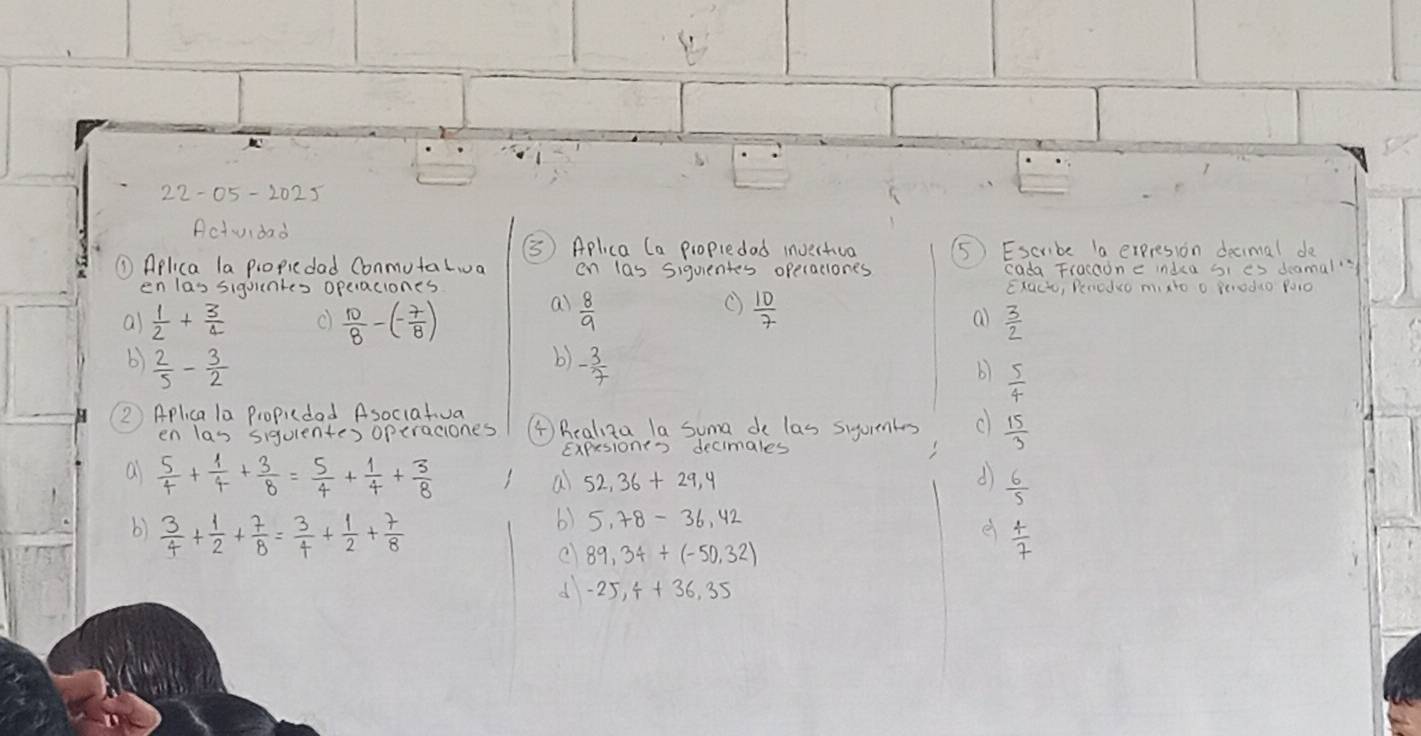 22-05-2025
Actividad
① Aplica la propiedad Conmutativa
en las siguientes operaciones.
a) 1/2 + 3/4
c) 10/8 - (-7/8)
b) 2/5 - 3/2
② Aplica la Propiedad Asociativa
en las siguientes operaciones
a) 5/4 + 1/4 + 3/8 = 5/4 + 1/4 + 3/8
b) 3/4 + 1/2 + 7/8 = 3/4 + 1/2 + 7/8
③ Aplica la propiedad invertiva
en las siguientes operaciones
a) 8/9
c) 10/7
b) -3/7
④ Realiza la suma de las siguientes
Expresiones decimales
a) 52,36 + 29,4
b) 5,78 - 36,42
c) 89,34 + (-50,32)
d) -25,4 + 36,35
⑤ Escribe la expresión decimal de
cada Fracción e indica si es decimal
Exacto, Periodico mixto o periodico puro
a) 3/2
b) 5/4
c) 15/3
d) 6/5
e) 4/7